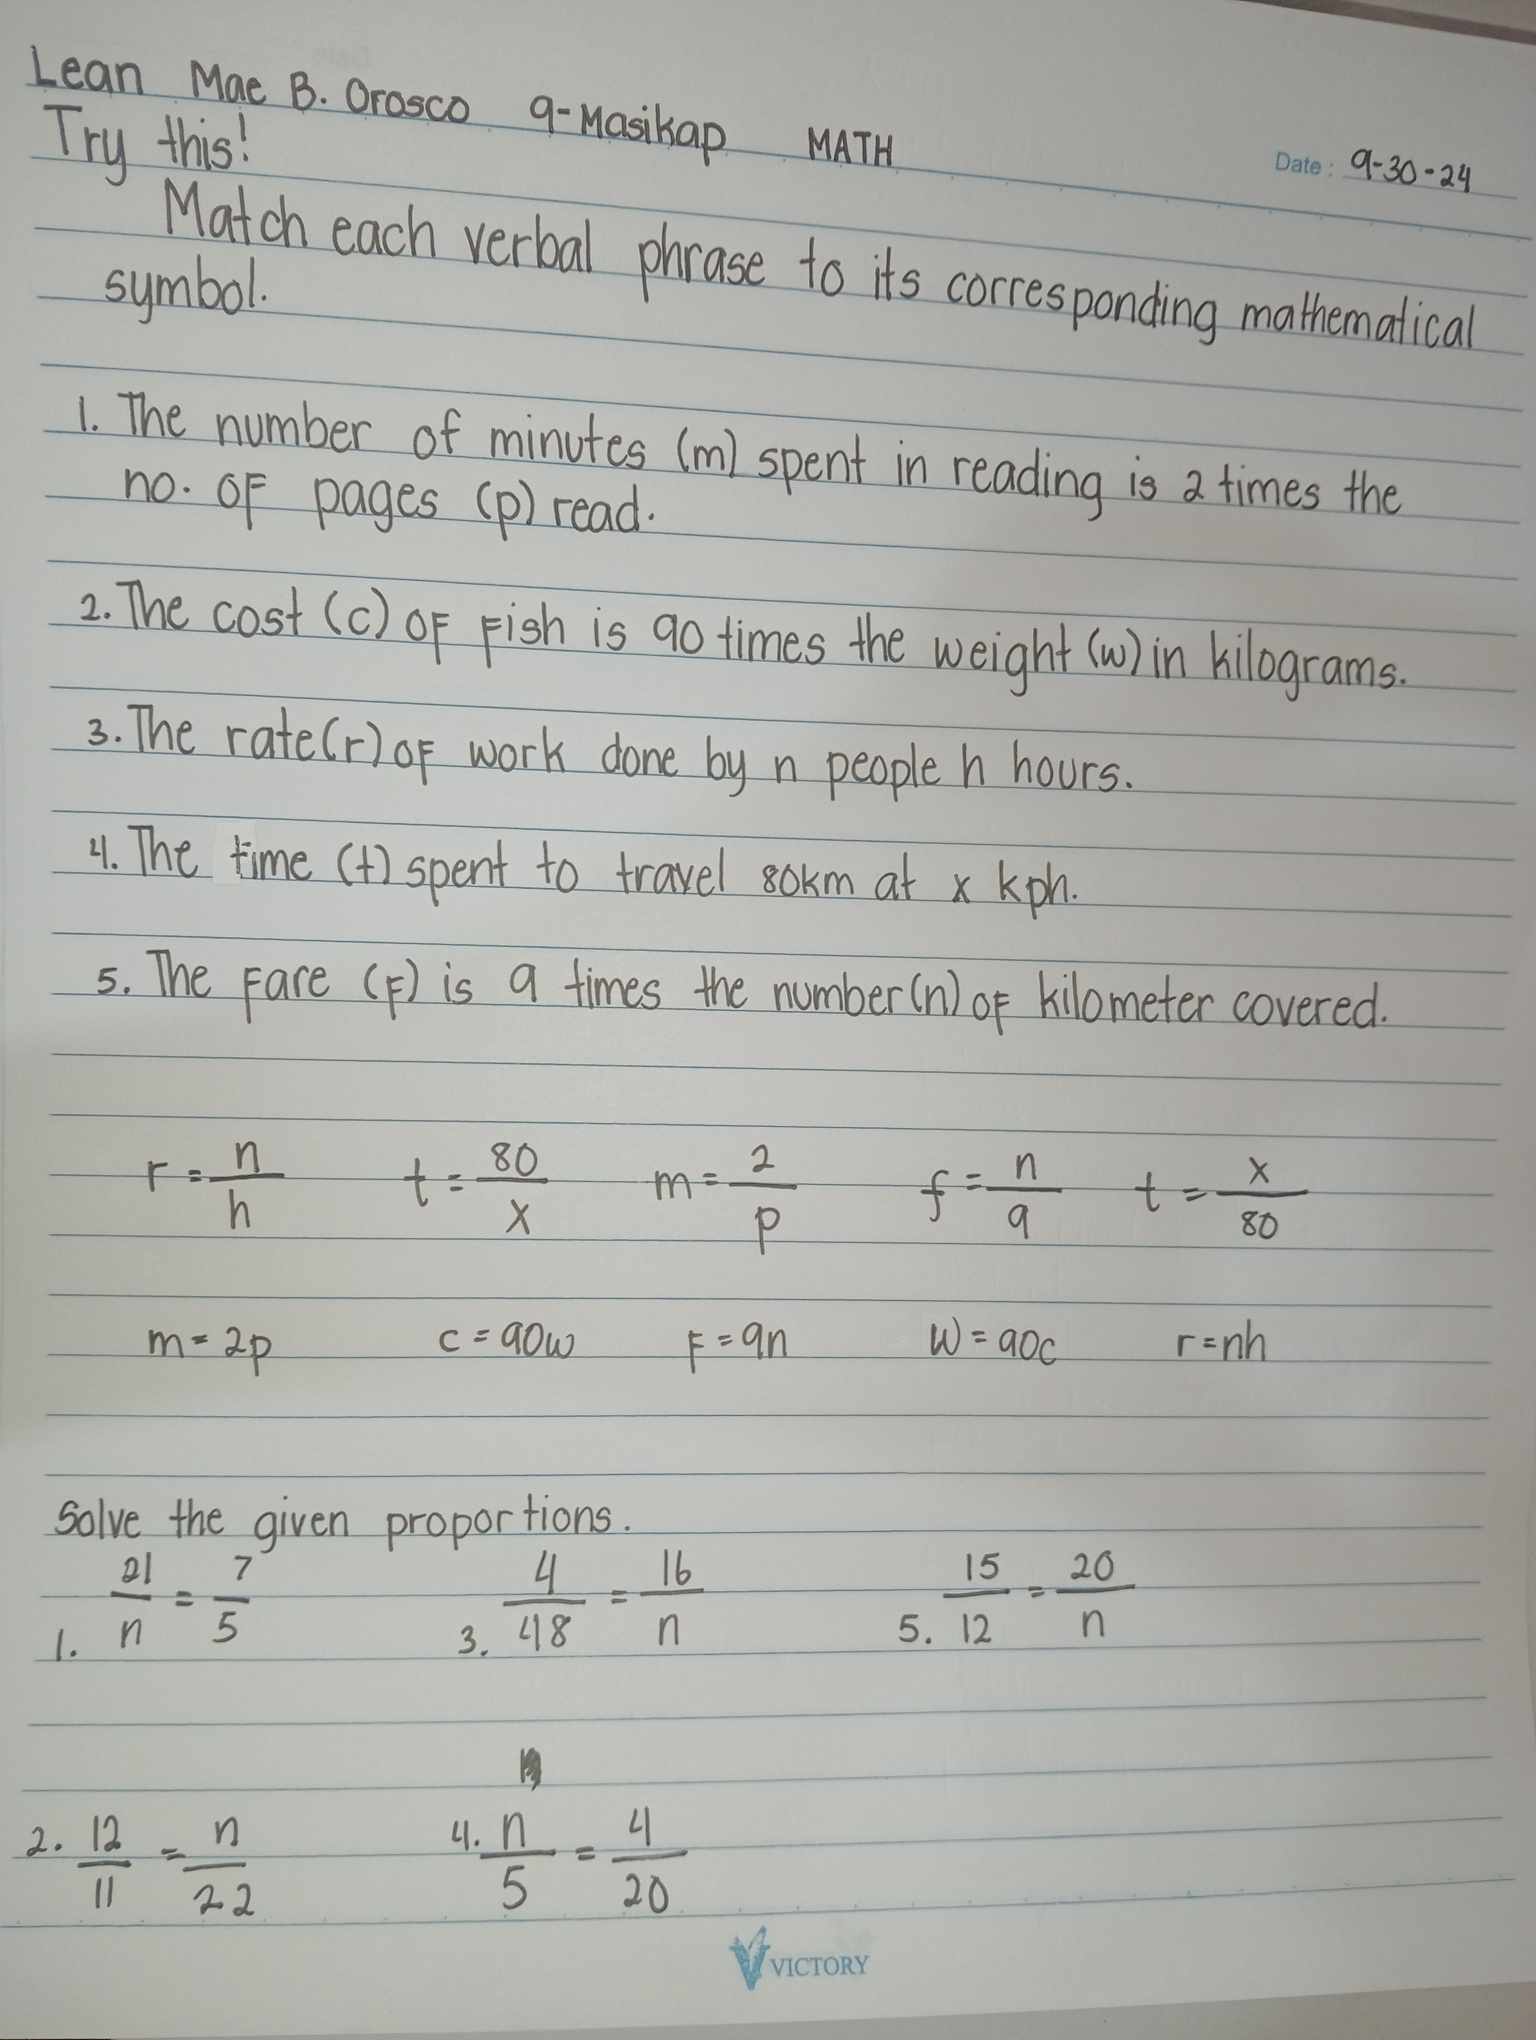 Lean Mae B. Orosco 9-Masikap MATH
Date: 9-30-24
Try this!
Match each verbal phrase to its corresponding mathematical
symbol.
1. The number of minutes (m) spent in reading is 2 times the
no. of pages (p) read.
2. The cost (c) of fish is 90 times the weight (w) in kilograms.
3. The rate (r) of work done by n people h hours.
4. The time (t) spent to travel 80km at x kph.
5. The Fare (F) is 9 times the number (n) of kilometer covered.
r = n/h t = 80/x m = 2/p f = n/9 t = x/80
m = 2p c = 90w F = 9n W = 90c r = nh
Solve the given proportions.
1. 21/n = 7/5 3. 4/48 = 16/n 5. 15/12 = 20/n
2. 12/11 = n/22 4. n/5 = 4/20
VICTORY